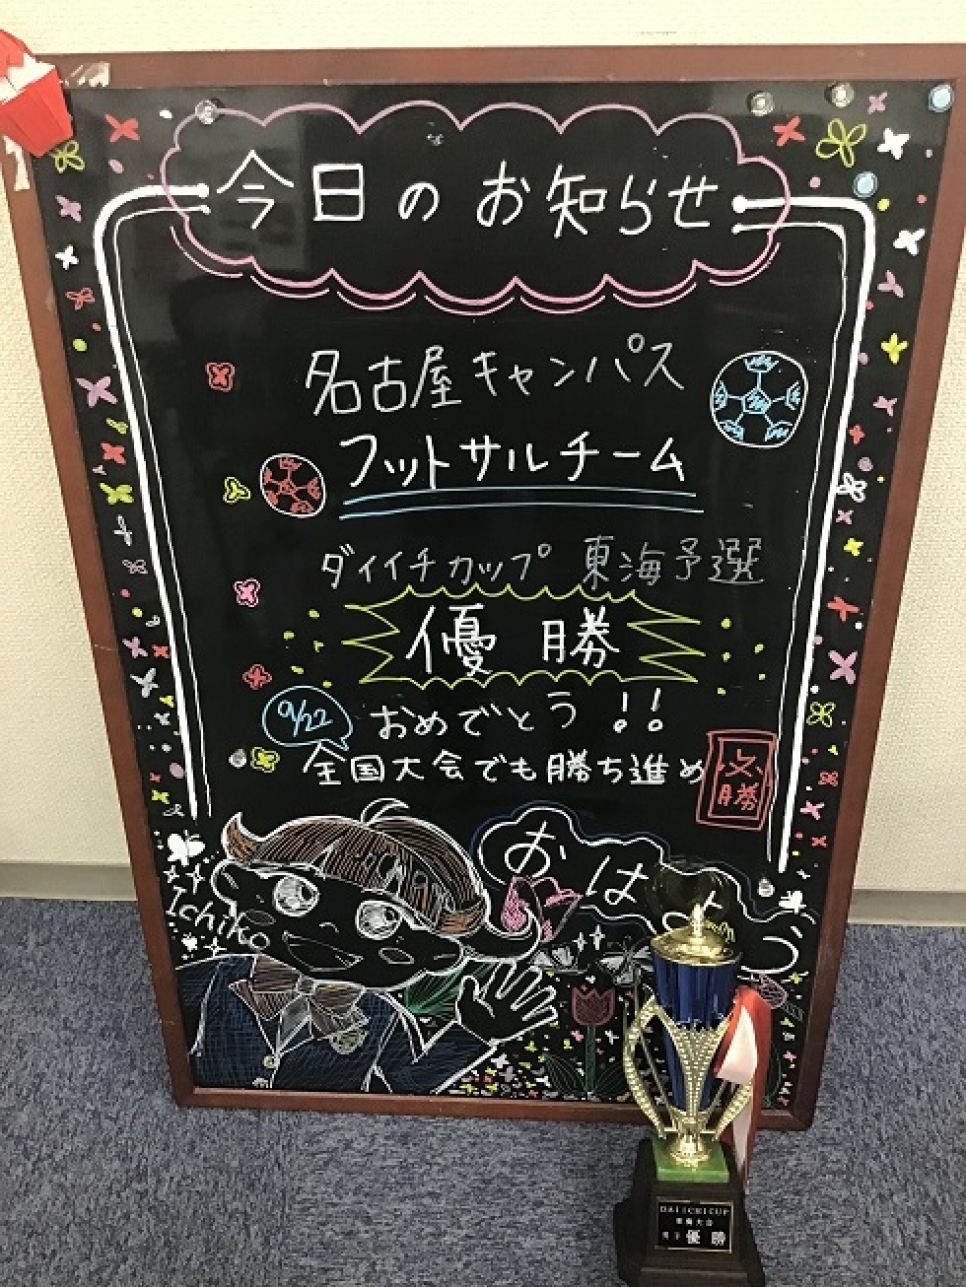 今日のお知らせ
名古屋キャンパス
フットサルチーム
ダイイチカップ 東海予選
優勝
9/22
おめでとう!!
全国大会でも勝ち進め
必勝
おはよう
Ichiko
DAIICHI CUP
東海大会
男子 優勝